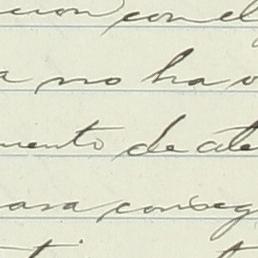 cion con el
a no ha o
mento de ate
para conseg